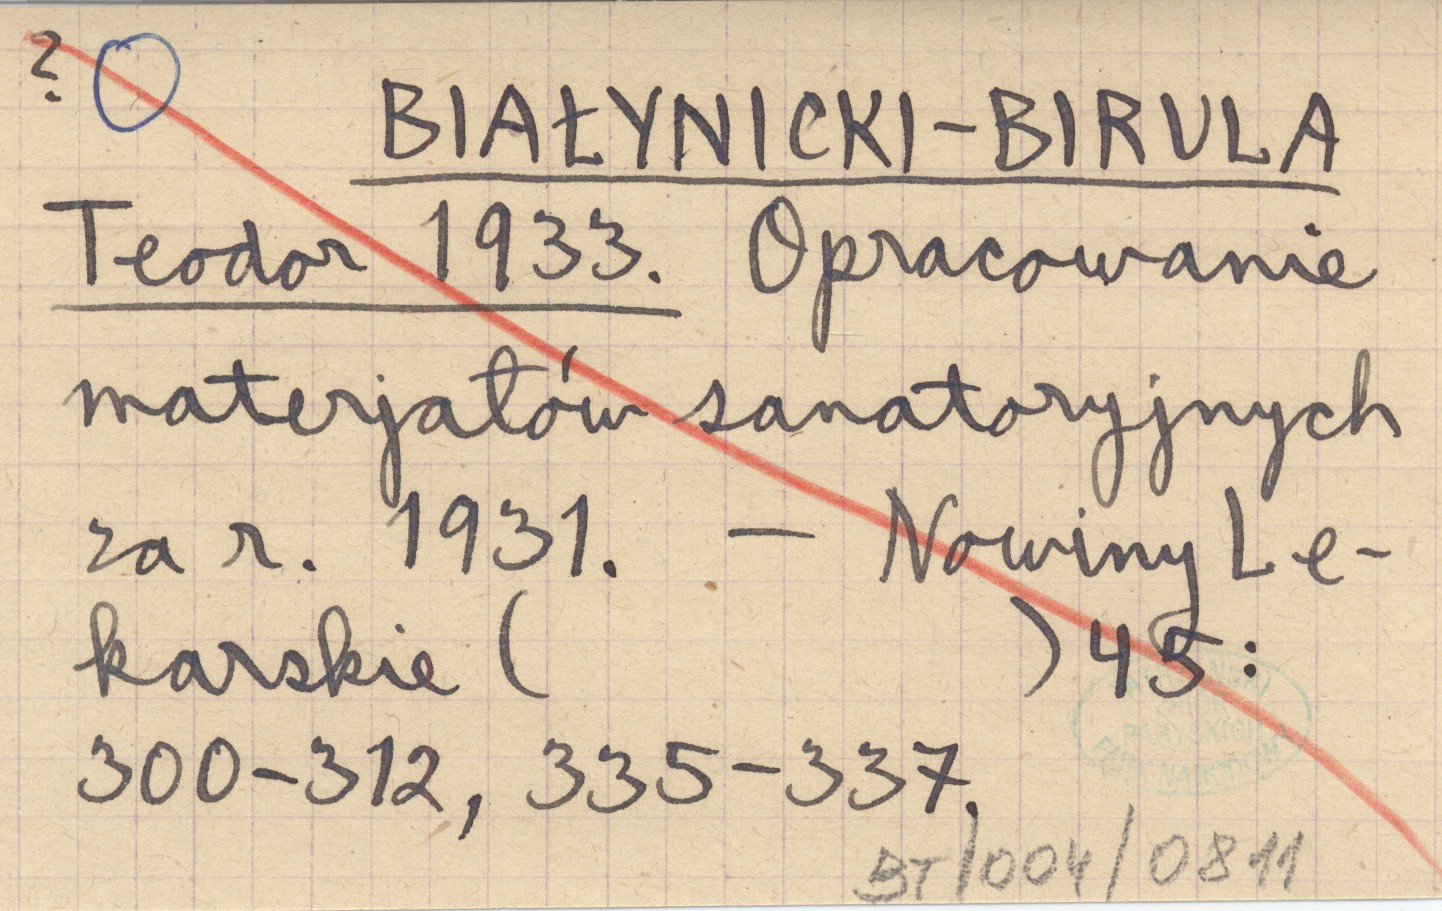 ?
BIAŁYNICKI-BIRULA
Teodor 1933. Opracowanie
materjałów sanatoryjnych
za r. 1931. — Nowiny Le-
karskie ( ) 45:
300-312, 335-337.
BT/004/0811